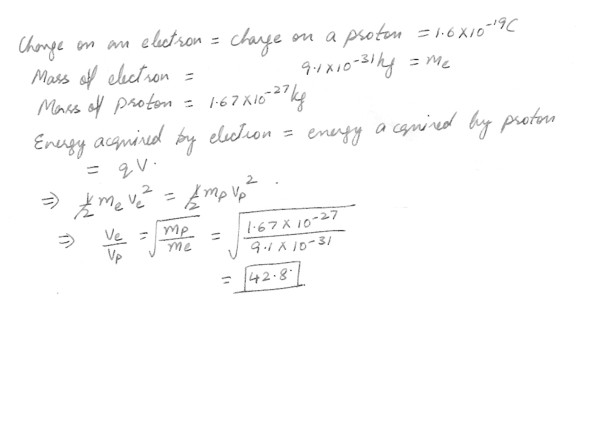 Charge on an electron = charge on a proton = 1.6 x 10^-19 C
Mass of electron = 9.1 x 10^-31 kg = me
Mass of proton = 1.67 x 10^-27 kg
Energy acquired by electron = energy acquired by proton
= qV.
⇒ 1/2 me ve^2 = 1/2 mp vp^2.
⇒ ve/vp = √(mp/me) = √(1.67 x 10^-27 / 9.1 x 10^-31)
= 42.8